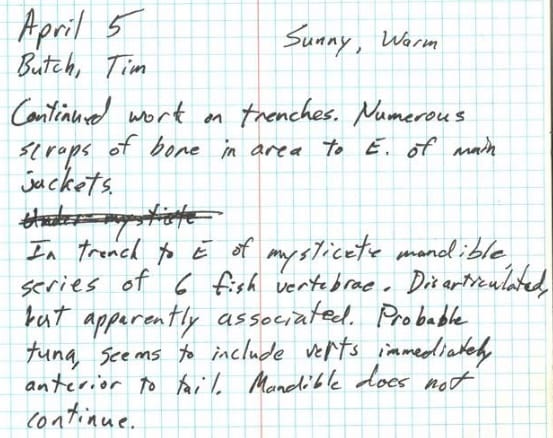 April 5
Sunny, Warm
Butch, Tim
Continued work on trenches. Numerous
scraps of bone in area to E. of main
jackets.
Under mysticete
In trench to E of mysticete mandible,
series of 6 fish vertebrae. Disarticulated,
but apparently associated. Probable
tuna, seems to include verts immediately
anterior to tail. Mandible does not
continue.